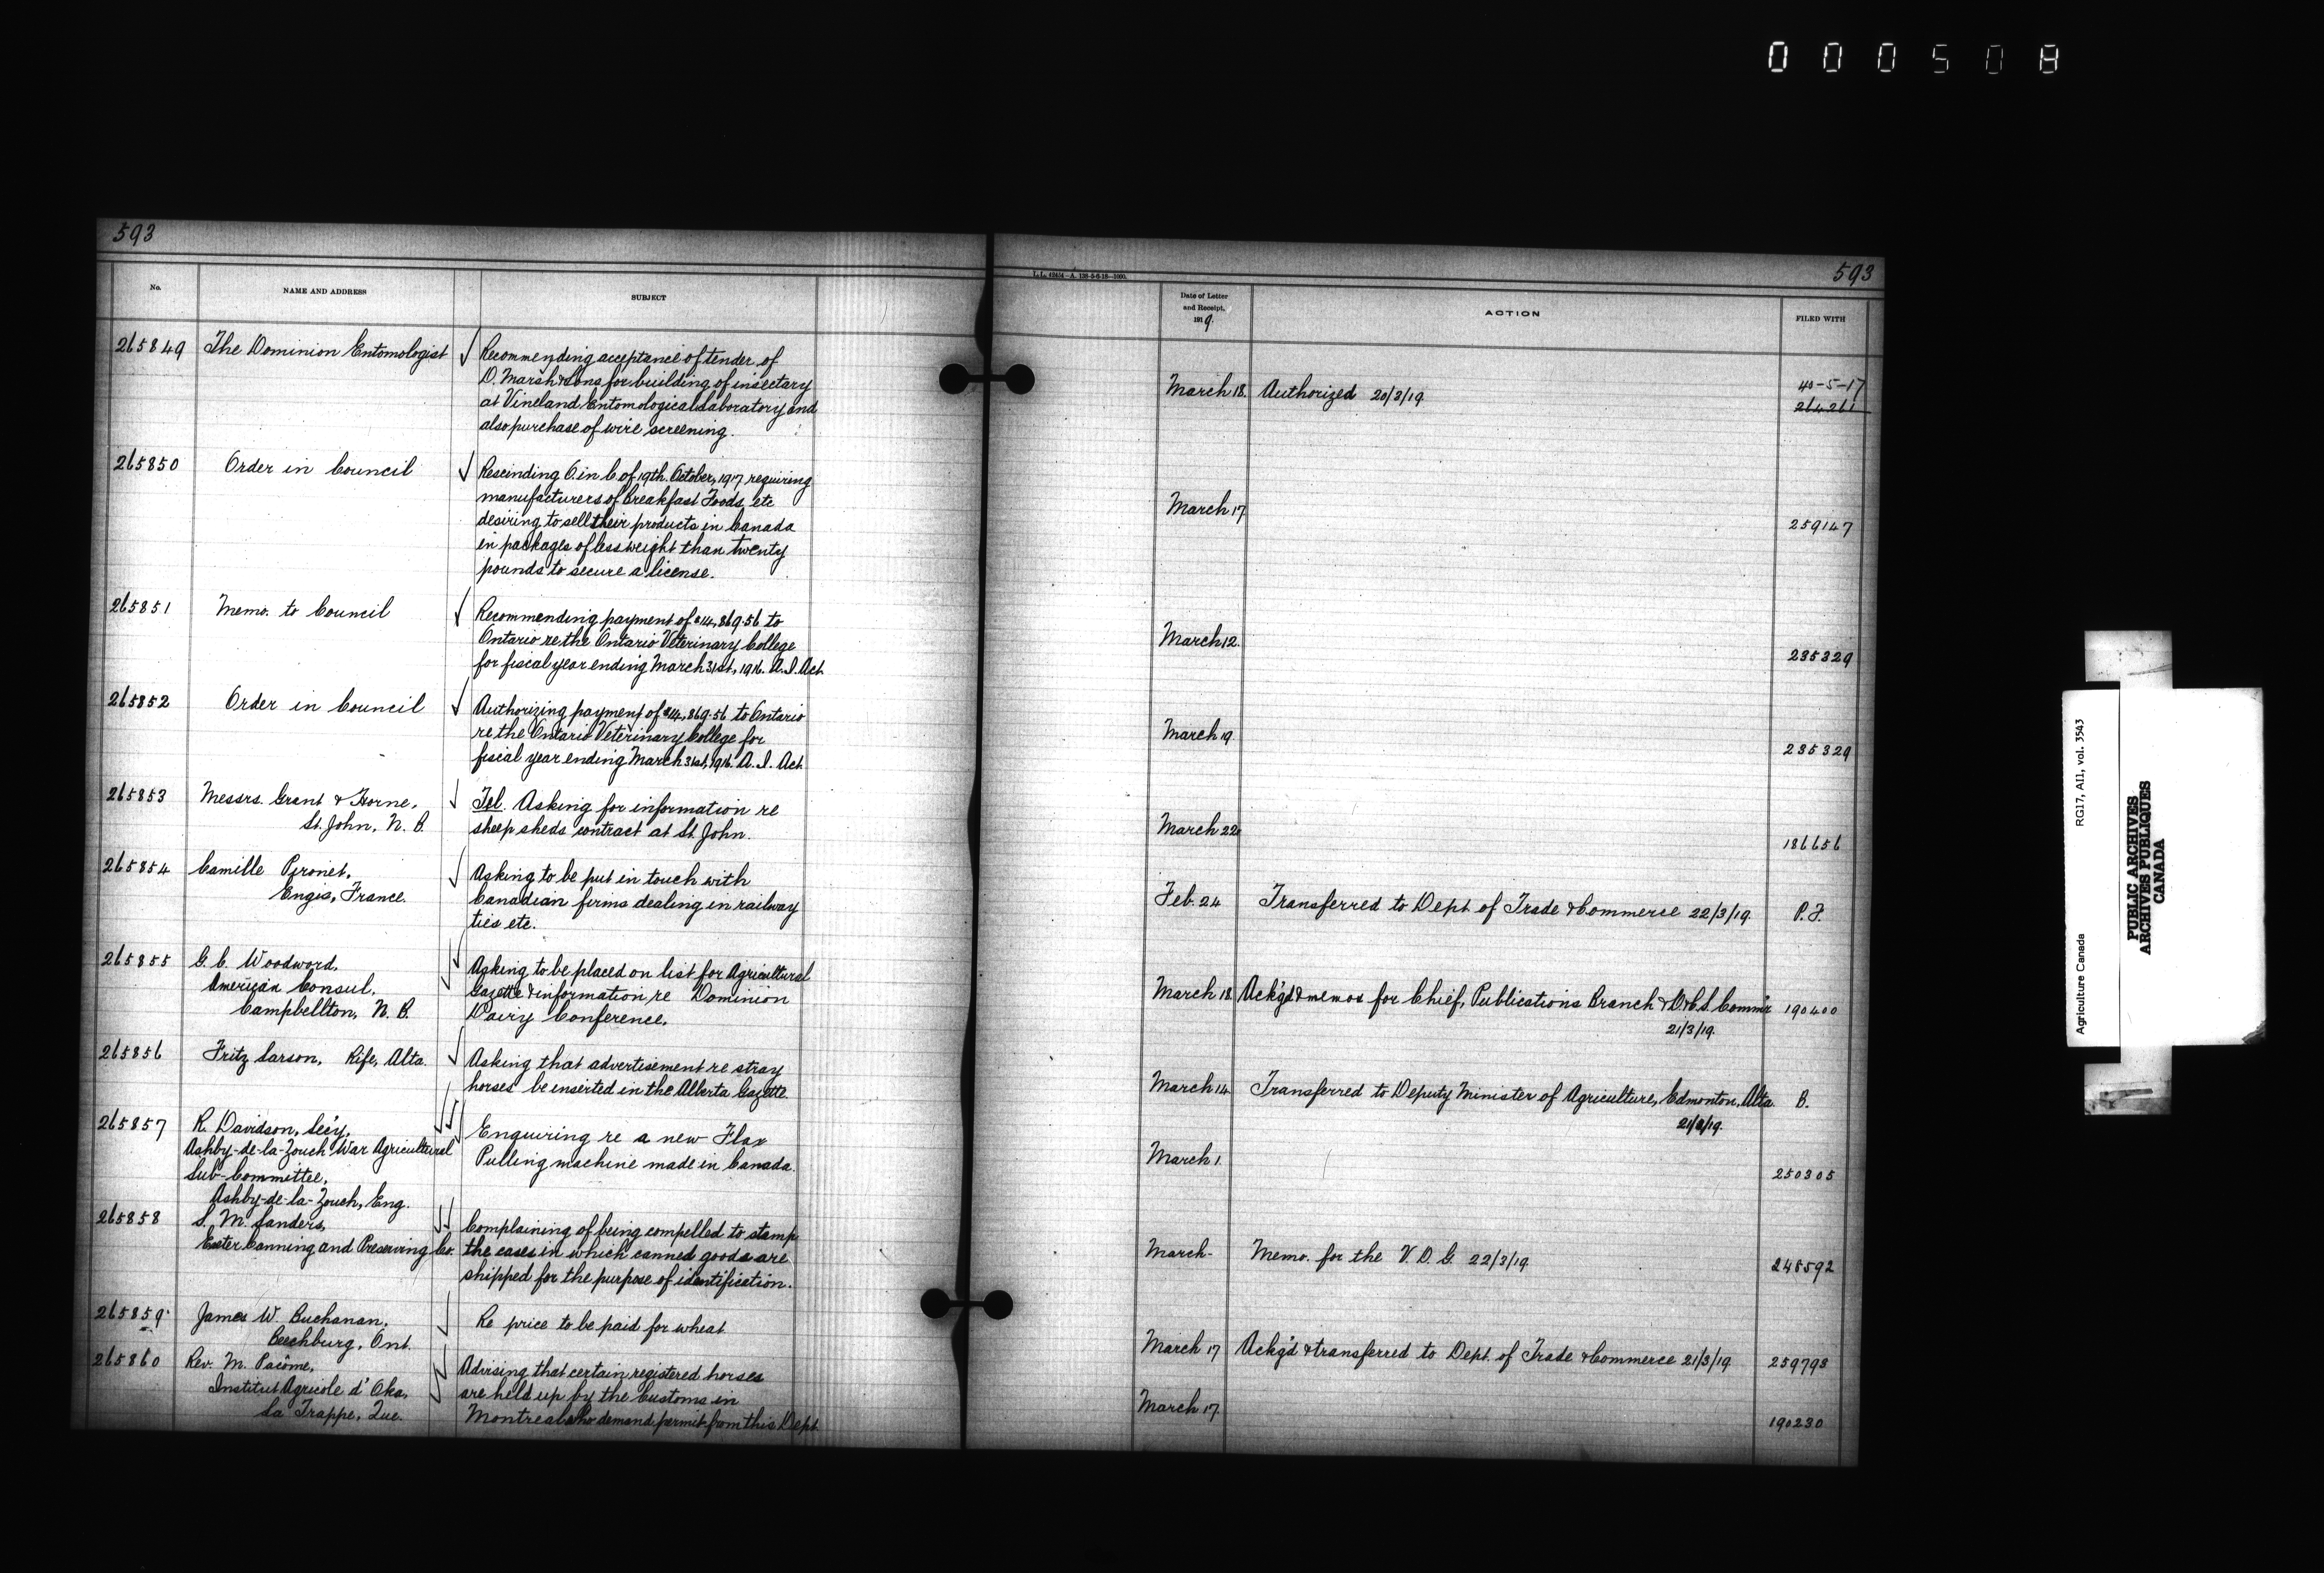 000508
593
No.
NAME AND ADDRESS
SUBJECT
265849 The Dominion Entomologist
Recommending acceptance of tender of
D. Marsh & Sons for building of insectary
at Vineland Entomological Laboratory and
also purchase of wire screening.
265850 Order in Council
Rescinding O. in C. of 19th. October, 1917 requiring
manufacturers of Breakfast Foods, etc
desiring to sell their products in Canada
in packages of less weight than twenty
pounds to secure a license.
265851 Memo. to Council
Recommending payment of $14,869.56 to
Ontario re the Ontario Veterinary College
for fiscal year ending March 31st, 1916. A.I. Act
265852 Order in Council
Authorizing payment of $14,869.56 to Ontario
re the Ontario Veterinary College for
fiscal year ending March 31st, 1916. A.I. Act
265853 Messrs. Grant & Horne,
St. John, N.B.
Tel. Asking for information re
sheep sheds contract at St. John.
265854 Camille Pironet,
Engis, France.
Asking to be put in touch with
Canadian firms dealing in railway
ties etc.
265855 G.C. Woodword,
American Consul,
Campbellton, N.B.
Asking to be placed on list for Agricultural
Gazette & information re Dominion
Dairy Conference.
265856 Fritz Larson, Rife, Alta.
Asking that advertisement re stray
horses be inserted in the Alberta Gazette.
265857 R. Davidson, Sec'y,
Ashby-de-la-Zouch War Agricultural
Sub-Committee,
Ashby-de-la-Zouch, Eng.
Enquiring re a new Flax
Pulling machine made in Canada.
265858 S. M. Sanders,
Exeter Canning and Preserving Co.
Complaining of being compelled to stamp
the cases in which canned goods are
shipped for the purpose of identification.
265859 James W. Buchanan,
Beechburg, Ont.
Re price to be paid for wheat
265860 Rev. M. Pacôme,
Institut Agricole d'Oka,
La Trappe, Que.
Advising that certain registered horses
are held up by the Customs in
Montreal who demand permit from this Dept.
593
Date of Letter
and Receipt,
1919.
ACTION
FILED WITH
March 18. Authorized 20/3/19
40-5-17
264261
March 17 259147
March 12. 235329
March 19 235329
March 22 186656
Feb. 24 Transferred to Dept of Trade & Commerce 22/3/19 P.F.
March 18 Ack'gd & memos for Chief, Publications Branch & D.&C.S. Comm'r 190400
21/3/19.
March 14 Transferred to Deputy Minister of Agriculture, Edmonton, Alta. B.
21/3/19.
March 1. 250305
March - Memo. for the V.D.G. 22/3/19. 248592
March 17 Ack'g'd & transferred to Dept. of Trade & Commerce 21/3/19 259793
March 17. 190230
Agriculture Canada RG17, AI1, vol. 3543
PUBLIC ARCHIVES
ARCHIVES PUBLIQUES
CANADA